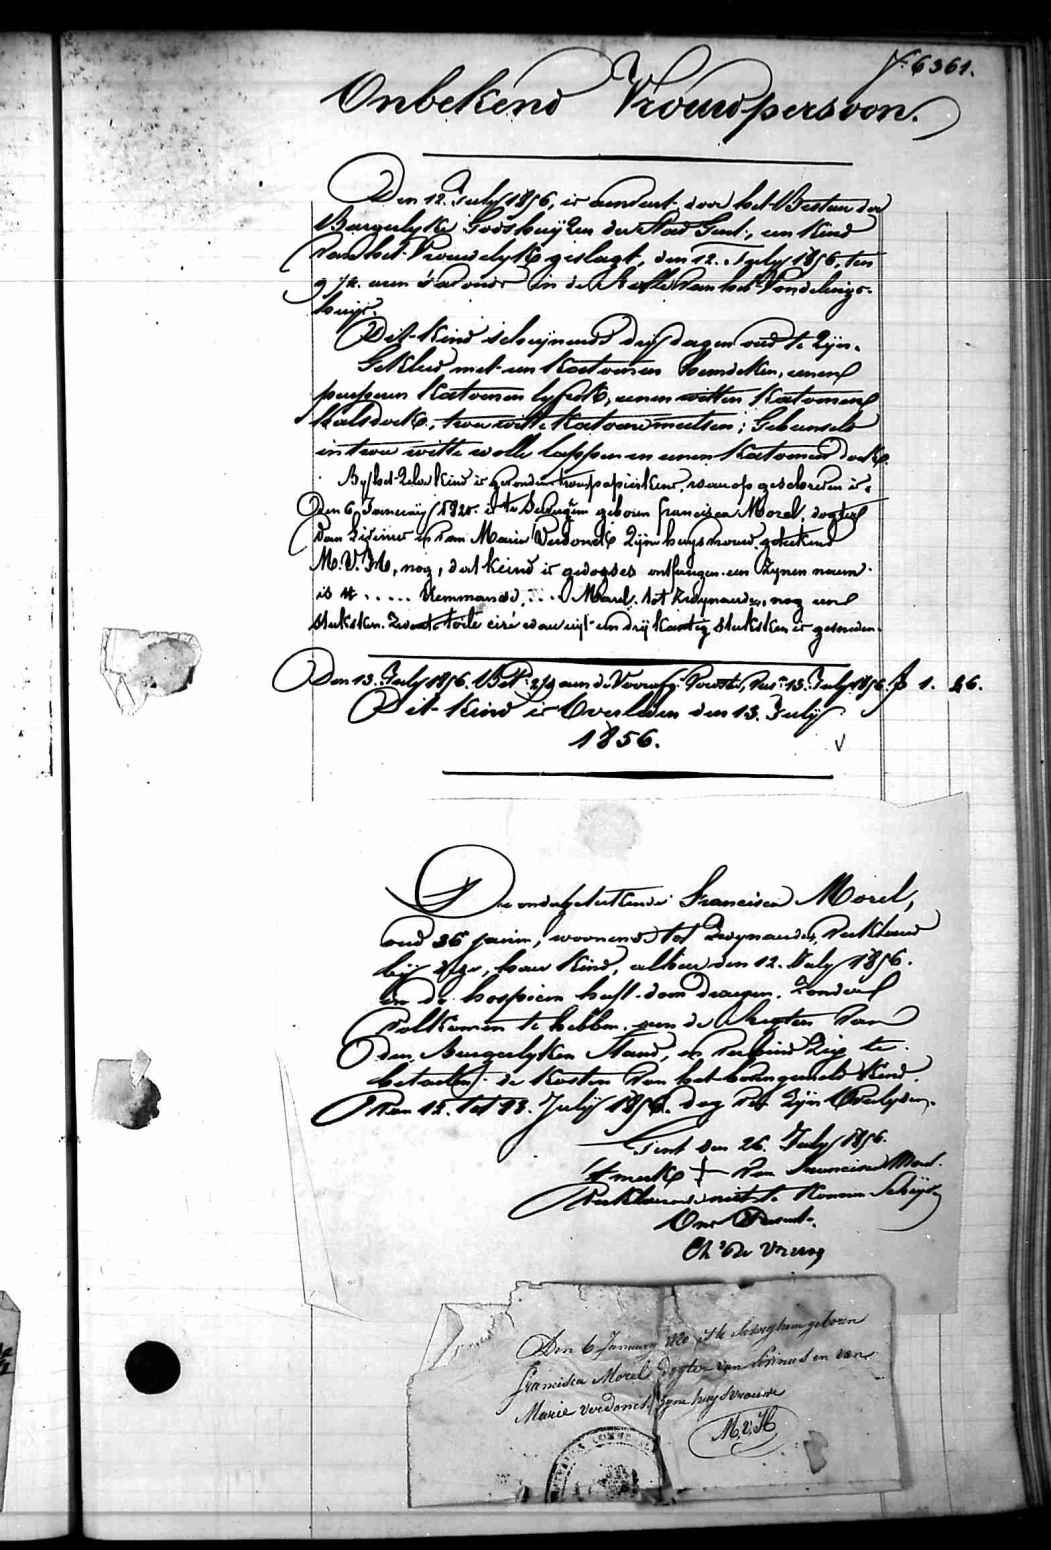 N.º 6361.
Onbekend Vrouwpersoon.
Den 12. July 1856, is aenveert door het Bestuer der
Burgerlyke Godshuijzen der Stad Gent, een kind
van het Vrouwelyk geslagt, den 12. July 1856. ten
9 ½ uren 's avonds in de Rolle van het Vondelings-
huijs.
Dit kind schijnende drij dagen oud te zijn.
Gekleed met een katoenen hemdeken, eenen
purperen katoenen lyfrok, eenen witten katoenen
halsdoek, twee witte katoenen mutsen; Gebunseld
in twee witte wolle lappen en eenen katoenen doek.
By het zelve kind is gevonden twee papierkens, waerop geschreven is:
Den 6 January 1820. is te geboren francisca Morel, dogter
van Livinus en van Marie Verdonck zijne huysvrouw, geteekend
M.V.H, nog, dat keind is gedogses ontfangen een zynen naem
is ..... Vlemmands, .... Marel, tot Zwynaerde, nog een
stuksken zwart toile ciré waeruijt een drij kantig stuksken is gesneden.
Den 13. July 1856. Bet. 2/9 aen de Voorafg. 13. July 1856 f 1. 26.
Dit kind is Overleden den 13. July
1856.
De ondergeteekende Francisca Morel,
oud 36 jaeren, woonende tot Zwynaerde, verklaerd
bij deze, haer kind, alhier den 12. July 1856.
in de hospicen heeft doen draegen, zonder
voldkomen te hebben aen de Regten van
den Burgerlyken Stand, en verbind zig te
betaelen de kosten van het voorngemeld kind.
van 12. tot 13. Julij 1856. dag van zijn Overlyden.
Gent den 26. July 1856.
't merk + van Francisca Morel.
verklaerende niet te konnen Schrijven
Ons Present.
Chs De Vreese
Den 6 January 1820 is te Severghem geboren
francisca Morel dogter van Livinus en van
Marie verdonck zyne huysvrouwe
M.V.H